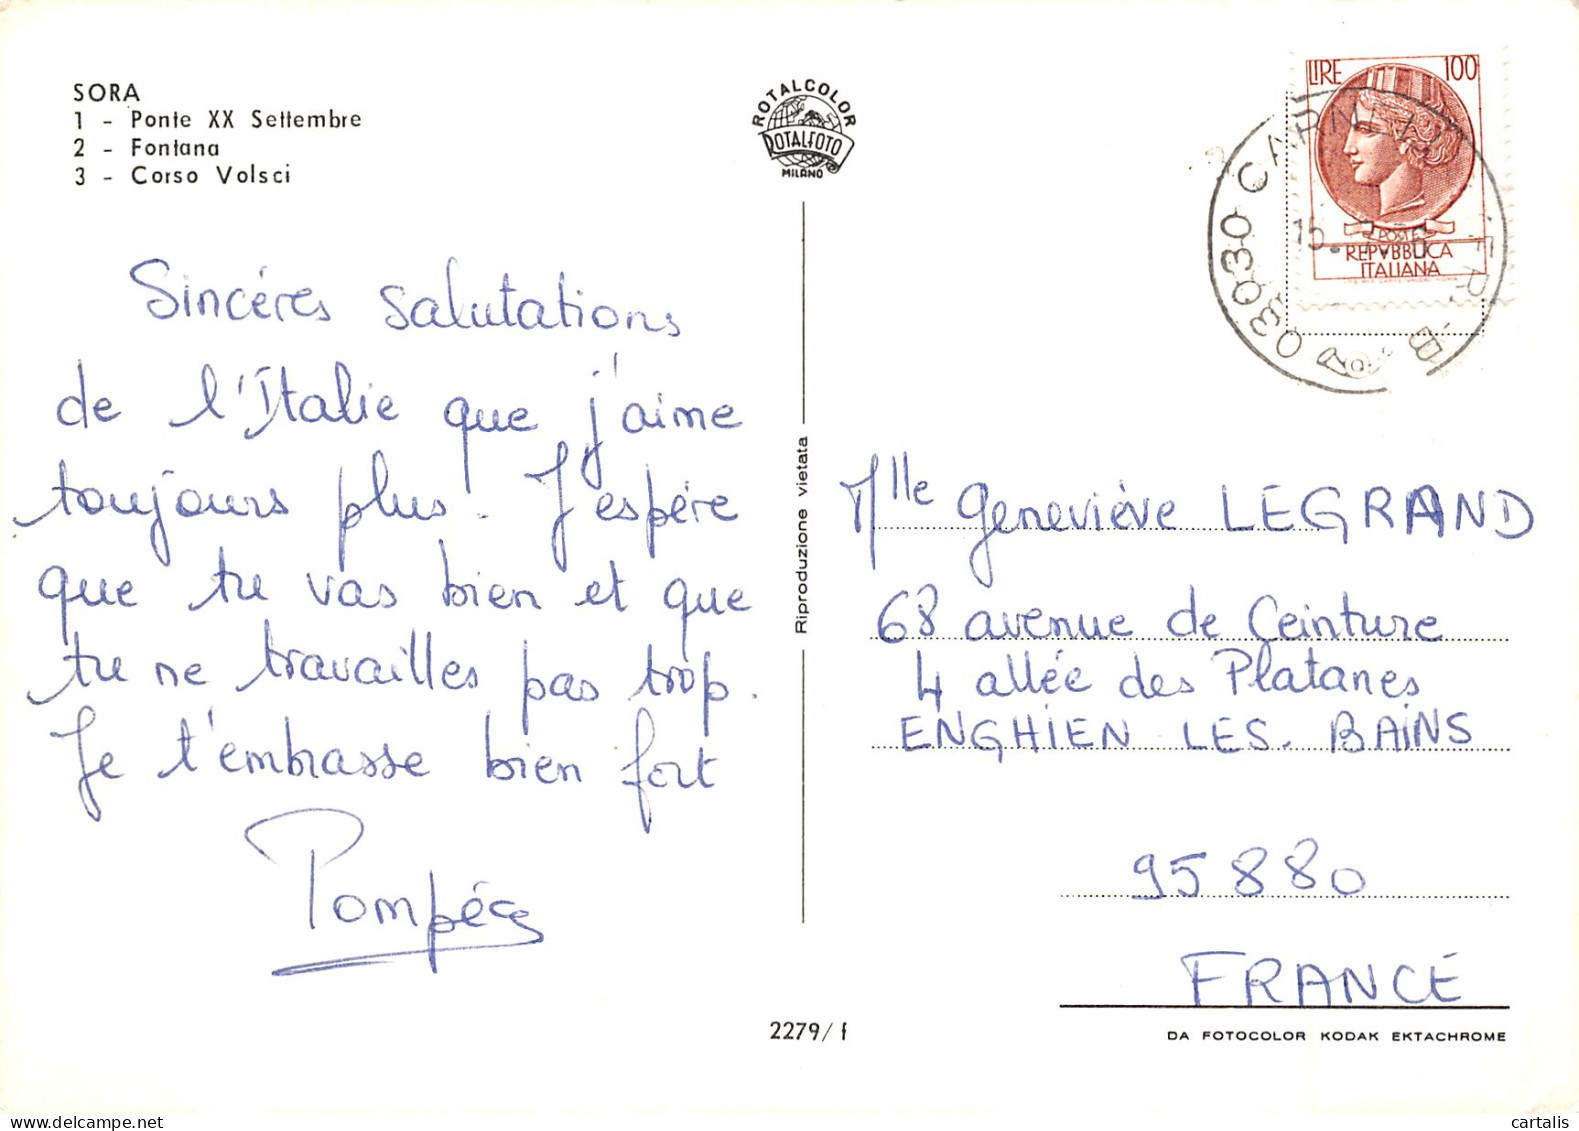 SORA
1 - Ponte XX Settembre
2 - Fontana
3 - Corso Volsci
ROTALCOLOR
ROTALFOTO
MILANO
LIRE 100
POSTE
REPVBBLICA
ITALIANA
03030
15.
Sincéres salutations
de l'Italie que j'aime
toujours plus. J'espére
que tu vas bien et que
tu ne travailles pas trop.
Je t'embrasse bien fort
Riproduzione vietata
Mlle Geneviève LEGRAND
68 avenue de Ceinture
4 allée des Platanes
ENGHIEN LES. BAINS
95880
FRANCE
2279/f
DA FOTOCOLOR KODAK EKTACHROME
cartalis